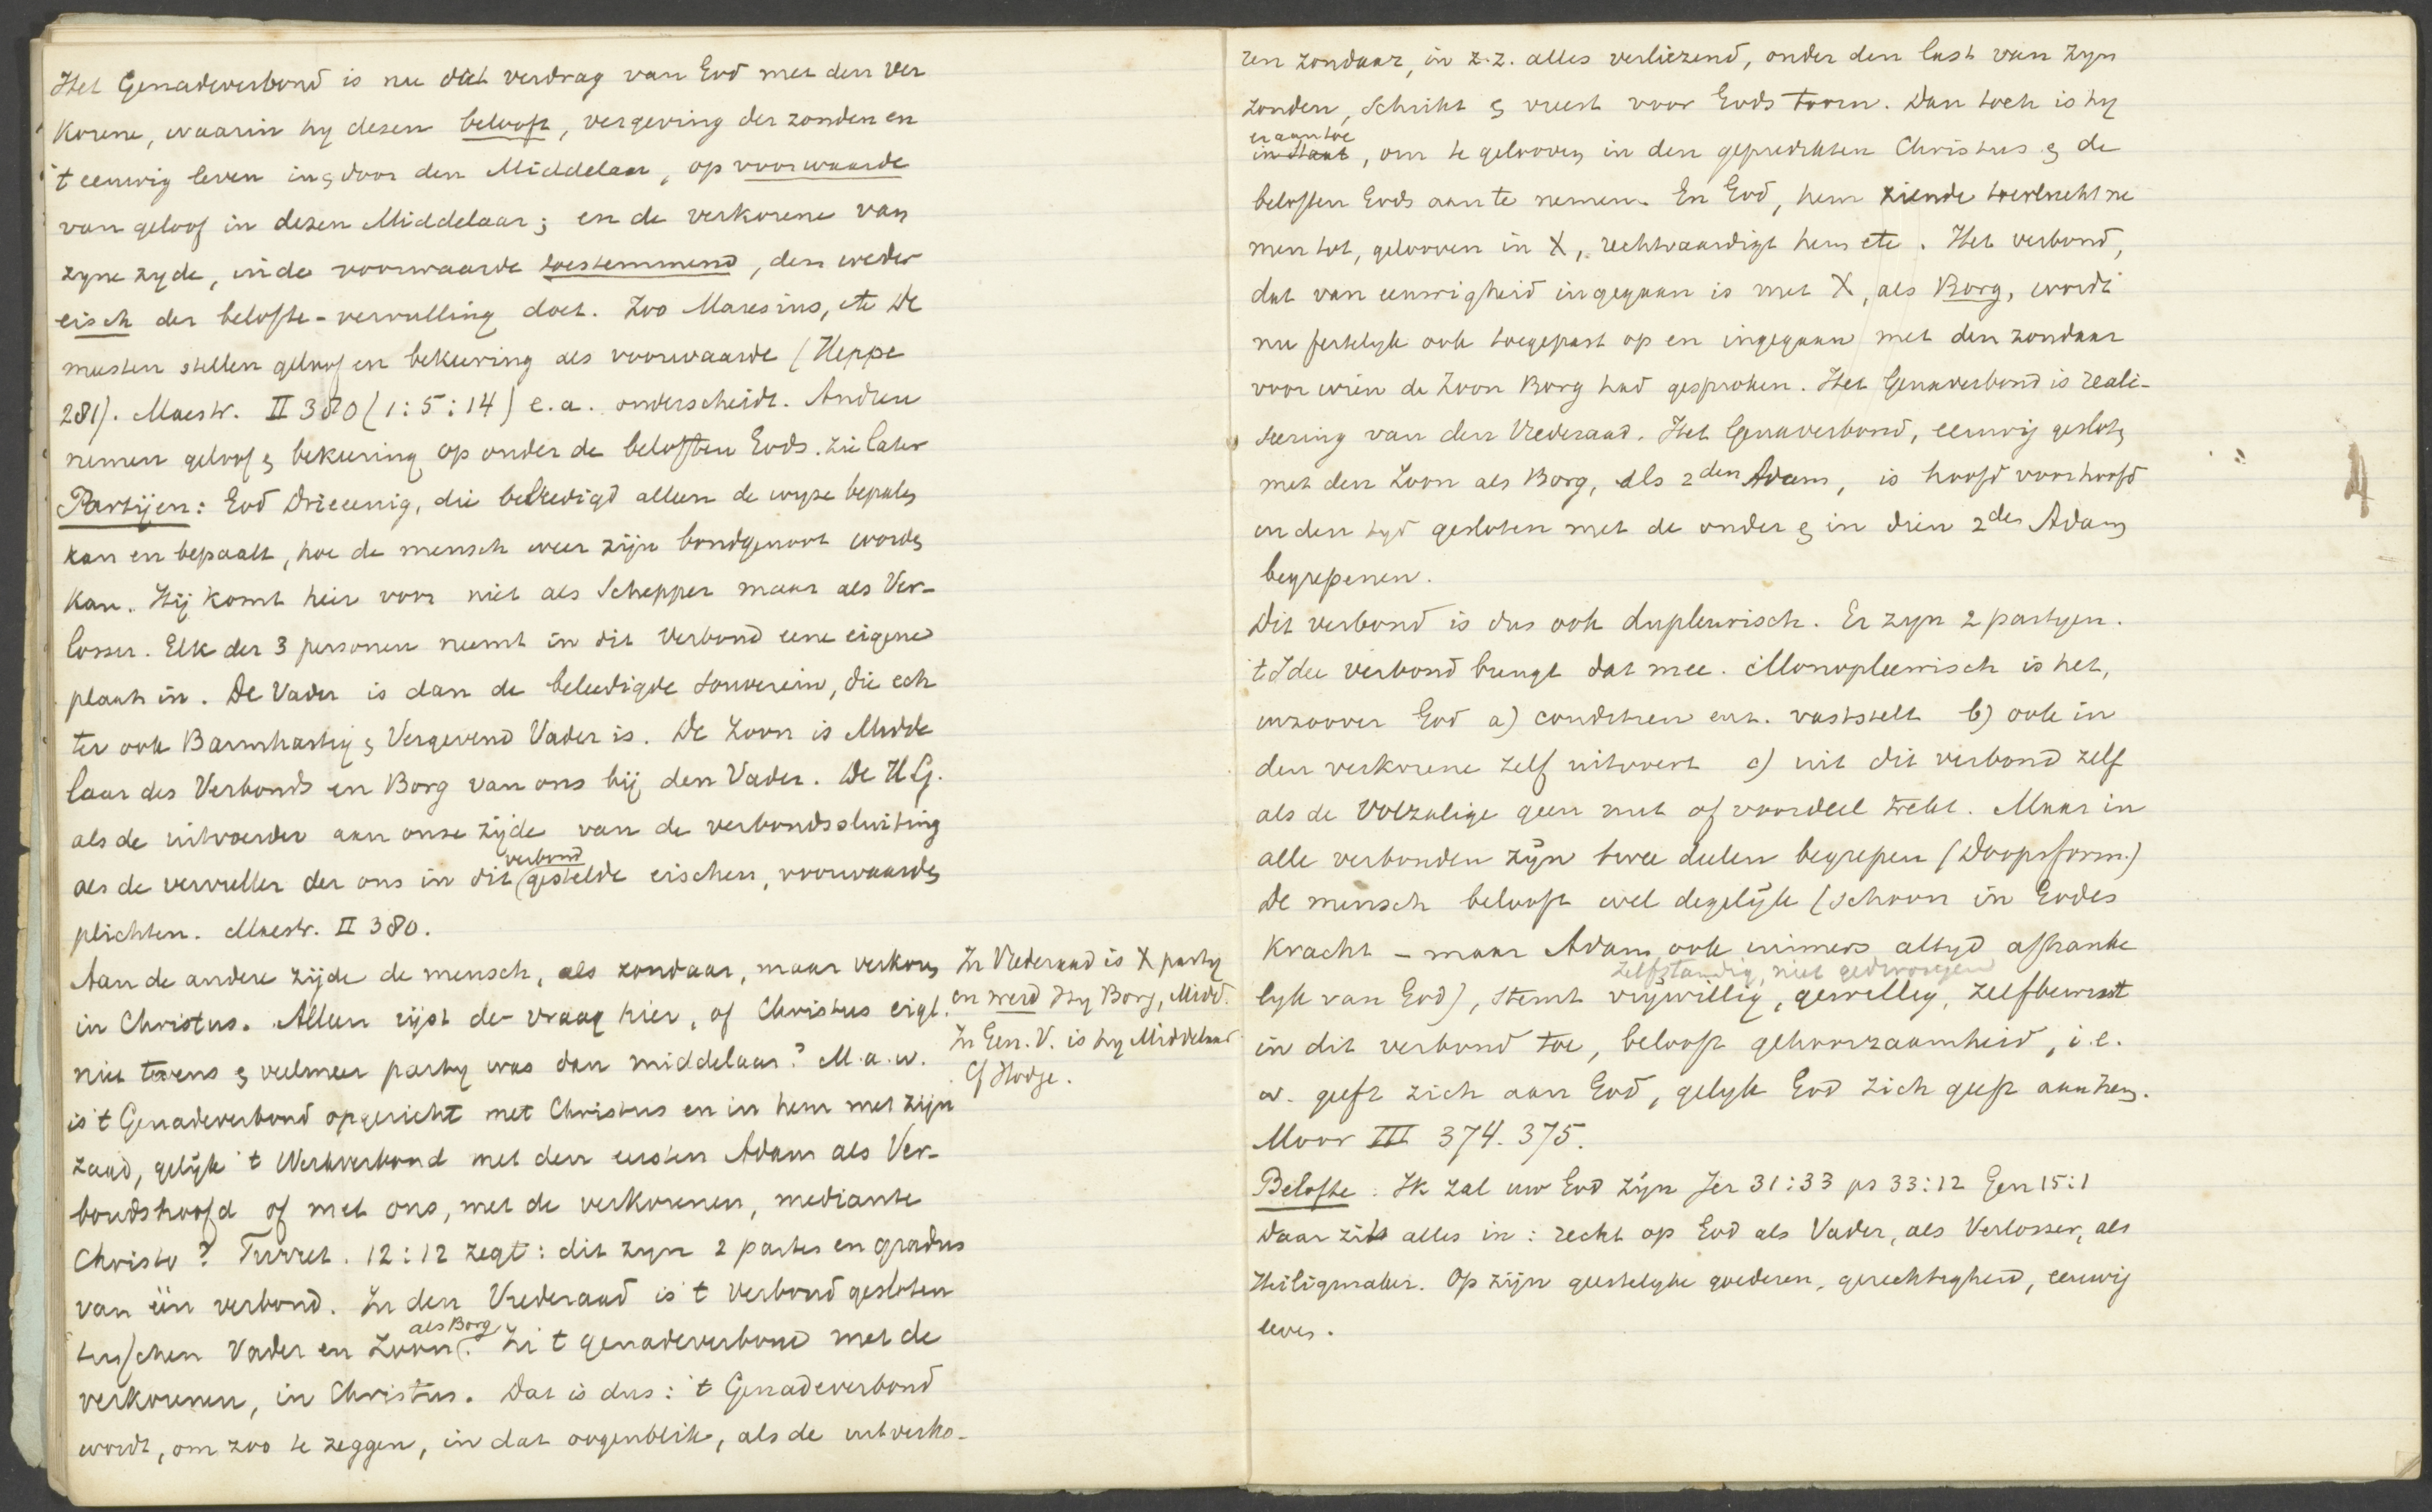 Het Genadeverbond is nu dàt verdrag van God met den Ver
korene, waarin hy dezen belooft, vergeving der zonden en
't eeuwig leven in & door den Middelaar, op voorwaarde
van geloof in dezen Middelaar; en de verkorene van
zyne zyde, in de voorwaarde toestemmend, den weder
eisch der belofte-vervulling doet. Zoo Maresius, etc De
meesten stellen geloof en bekeering als voorwaarde (Heppe
281). Maestr. II 380 (1:5:14) e.a. onderscheidt. Andren
nemen geloof & bekeering op onder de beloften Gods. zie later
Partijen: God Drieeenig, die beleedigd alleen de wyze bepalen
kan en bepaalt, hoe de mensch weer zijn bondgenoot worden
kan. Hij komt hier voor niet als Schepper maar als Ver-
losser. Elk der 3 personen neemt in dit Verbond eene eigene
plaats in. De Vader is dan de beleedigde souverein, die ech
ter ook Barmhartig & Vergevend Vader is. De Zoon is Midde
laar des Verbonds en Borg van ons bij den Vader. De H.G.
als de uitvoerder aan onze zijde van de verbondssluiting
verbond
als de vervuller der ons in dit gestelde eischen, voorwaarden
plichten. Maestr. II 380.
Aan de andere zijde de mensch, als zondaar, maar verkoren
in Christus. Alleen rijst de vraag hier, of Christus eigl.
niet tevens & veelmeer party was dan middelaar? M.a.w.
is 't Genadeverbond opgericht met Christus en in hem met zijn
zaad, gelijk 't Werkverbond met den eersten Adam als Ver-
bondshoofd of met ons, met de verkorenen, mediante
Christo? Turret. 12:12 zegt: dit zyn 2 partes en gradus
van één verbond. In den Vrederaad is 't verbond gesloten
als Borg
tusschen Vader en Zoon. In 't genadeverbond met de
verkorenen, in Christus. Dat is dus: 't Genadeverbond
wordt, om zoo te zeggen, in dat oogenblik, als de uitverko-
In Vrederaad is X party
en werd Hy Borg, Midd.
In Gen. V. is hy Middelaar
Cf Hodge.
ren zondaar, in z.z. alles verliezend, onder den last van zyn
zonden, schrikt & vreest voor Gods toorn. Dan toch is hy
er aan toe
in staat, om te gelooven in den gepredikten Christus & de
beloften Gods aan te nemen. En God, hem ziende toevlucht ne
men tot, gelooven in X, rechtvaardigt hem etc. Het verbond,
dat van eeuwigheid ingegaan is met X, als Borg, wordt
nu feitelyk ook toegepast op en ingegaan met den zondaar
voor wien de Zoon Borg had gesproken. Het Genaverbond is reali-
seering van den Vrederaad. Het Genaverbond, eeuwig gesloten
met den Zoon als Borg, als 2den Adam, is hoofd voor hoofd
in den tyd gesloten met de onder & in dien 2den Adam
begrepenen.
Dit verbond is dus ook dupleurisch. Er zyn 2 partyen.
't Idee verbond brengt dat mee. Monopleurisch is het,
inzoover God a) conditien enz. vaststelt b) ook in
den verkorene zelf uitvoert c) uit dit verbond zelf
als de Volzalige geen nut of voordeel trekt. Maar in
alle verbonden zyn twee deelen begrepen (Doopsform.)
De mensch belooft wel degelijk (schoon in Godes
Kracht - maar Adam ook immers altyd afhanke
zelfstandig, niet gedwongen
lyk van God), stemt vrijwillig, gewillig, zelfbewust
in dit verbond toe, belooft gehoorzaamheid, i.e.
w. geeft zich aan God, gelyk God zich geeft aan hem.
Moor III 374. 375.
Belofte: Ik zal uw God zijn Jer 31:33 ps 33:12 Gen 15:1
Daar zit alles in: recht op God als Vader, als Verlosser, als
Heiligmaker. Op zijn geestelyke goederen, gerechtigheid, eeuwig
leven.